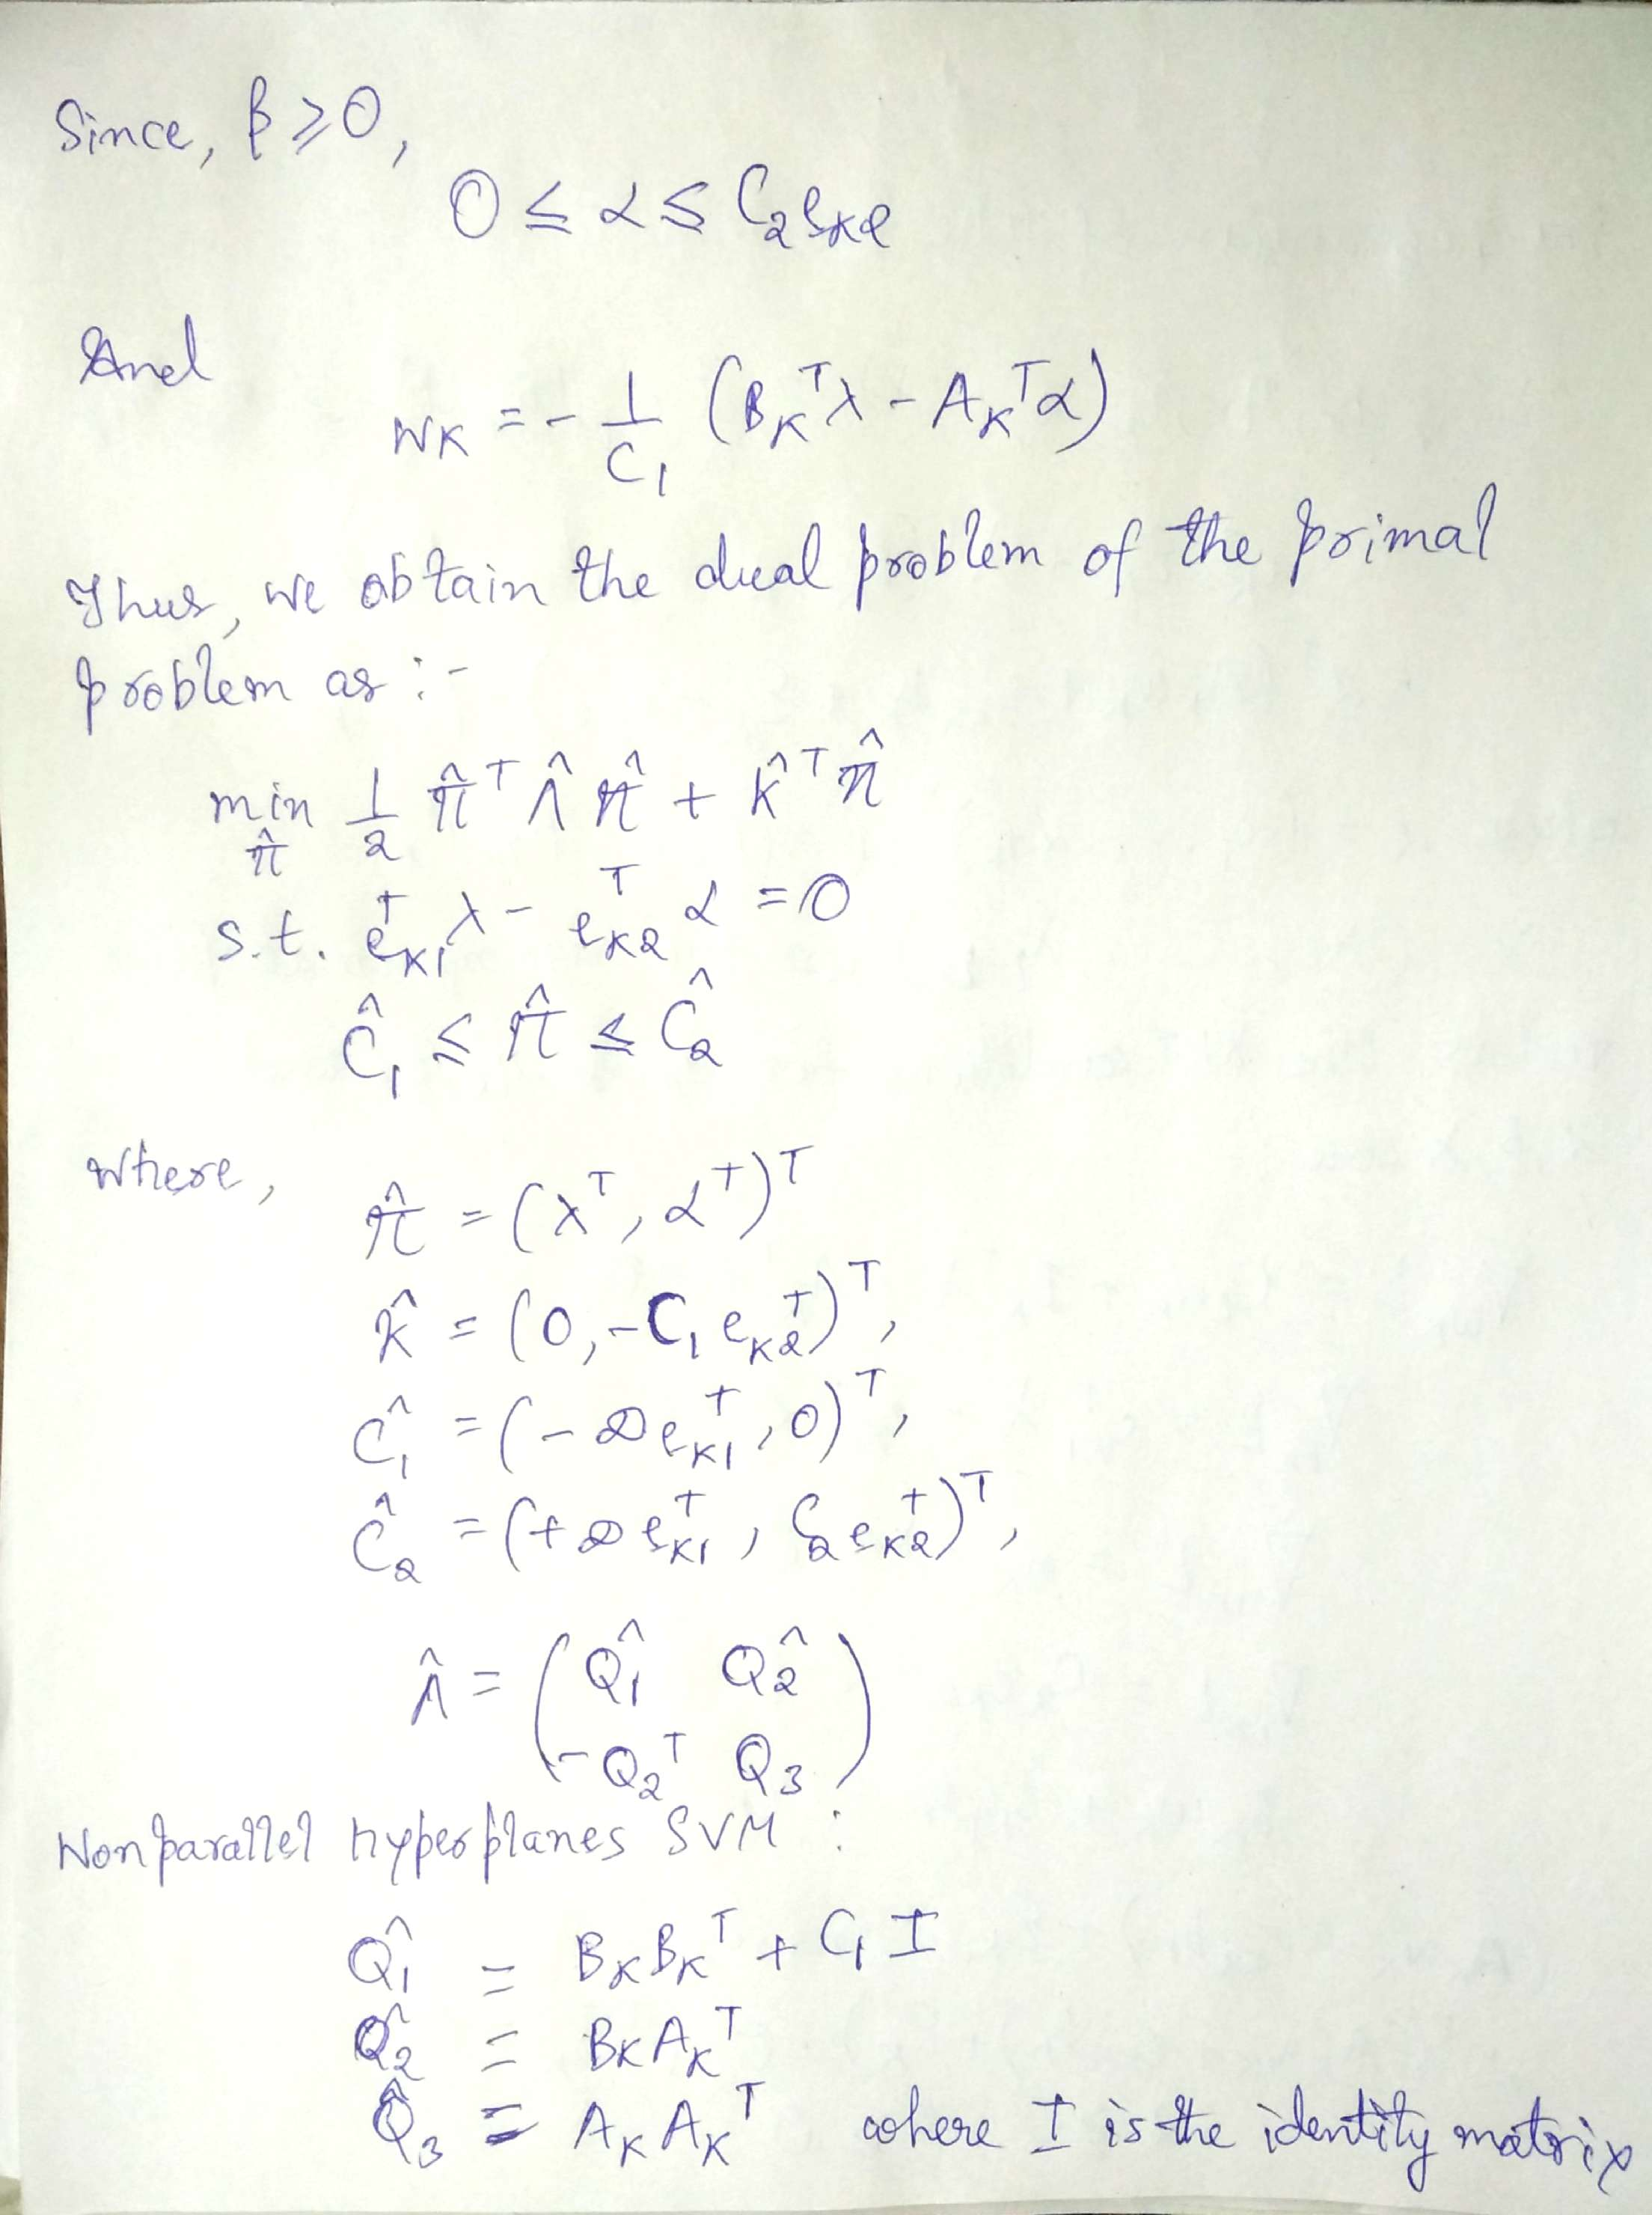 Since, β ≥ 0,
0 ≤ α ≤ C₂ e_{K2}
And
w_K = - 1/C₁ (B_K^T λ - A_K^T α)
Thus, we obtain the dual problem of the primal
problem as :-
min_{π̂} 1/2 π̂^T Λ̂ π̂ + K̂^T π̂
s.t. e_{K1}^T λ - e_{K2}^T α = 0
Ĉ₁ ≤ π̂ ≤ Ĉ₂
where,
π̂ = (λ^T, α^T)^T
K̂ = (0, -C₁ e_{K2}^T)^T,
Ĉ₁ = (-∞ e_{K1}^T, 0)^T,
Ĉ₂ = (+∞ e_{K1}^T, C₂ e_{K2}^T)^T,
Λ̂ = ( Q̂₁ Q̂₂
-Q₂^T Q₃ )
Nonparallel Hyperplanes SVM :
Q̂₁ = B_K B_K^T + C₁ I
Q̂₂ = B_K A_K^T
Q̂₃ = A_K A_K^T where I is the identity matrix